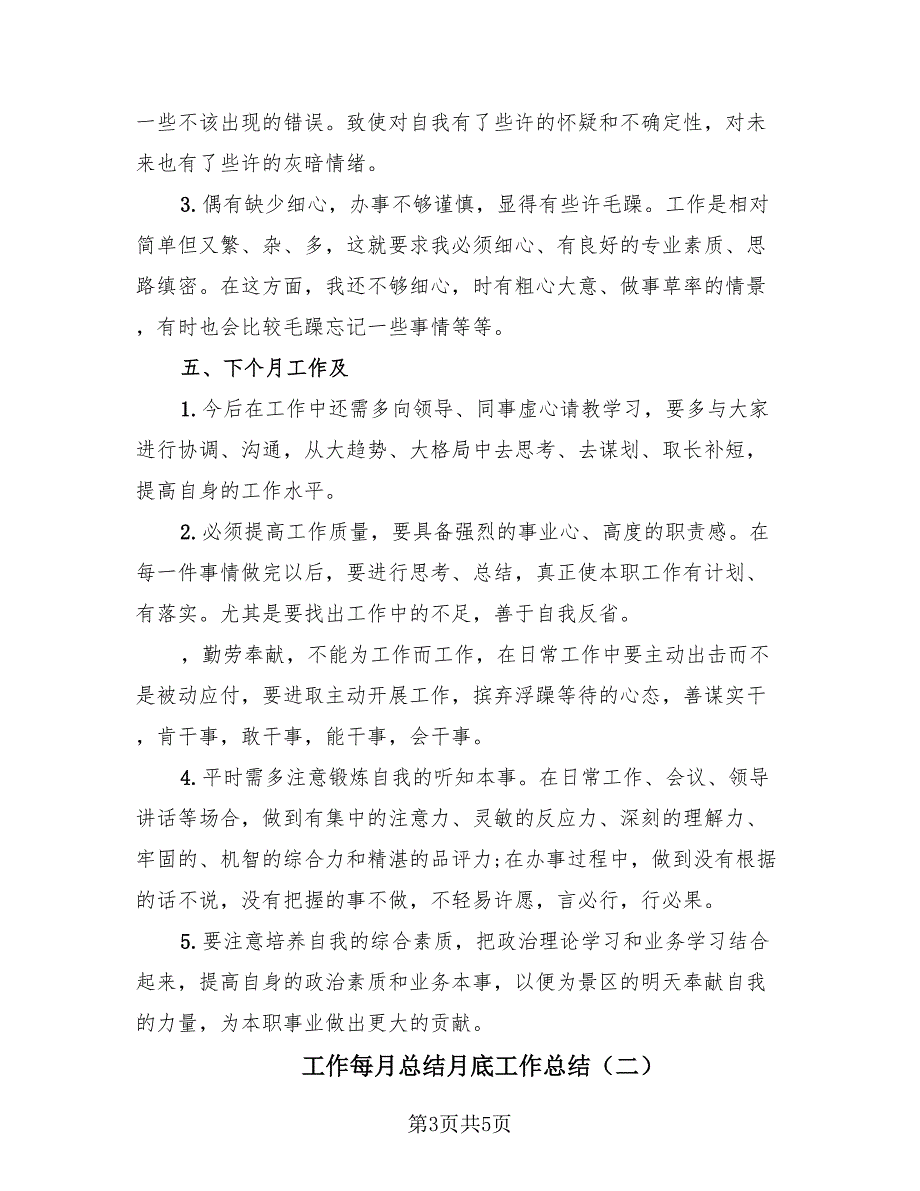 一些不该出现的错误。致使对自我有了些许的怀疑和不确定性，对未
来也有了些许的灰暗情绪。
3.偶有缺少细心，办事不够谨慎，显得有些许毛躁。工作是相对
简单但又繁、杂、多，这就要求我必须细心、有良好的专业素质、思
路缜密。在这方面，我还不够细心，时有粗心大意、做事草率的情景
，有时也会比较毛躁忘记一些事情等等。
五、下个月工作及
1.今后在工作中还需多向领导、同事虚心请教学习，要多与大家
进行协调、沟通，从大趋势、大格局中去思考、去谋划、取长补短，
提高自身的工作水平。
2.必须提高工作质量，要具备强烈的事业心、高度的职责感。在
每一件事情做完以后，要进行思考、总结，真正使本职工作有计划、
有落实。尤其是要找出工作中的不足，善于自我反省。
，勤劳奉献，不能为工作而工作，在日常工作中要主动出击而不
是被动应付，要进取主动开展工作，摈弃浮躁等待的心态，善谋实干
，肯干事，敢干事，能干事，会干事。
4.平时需多注意锻炼自我的听知本事。在日常工作、会议、领导
讲话等场合，做到有集中的注意力、灵敏的反应力、深刻的理解力、
牢固的、机智的综合力和精湛的品评力;在办事过程中，做到没有根据
的话不说，没有把握的事不做，不轻易许愿，言必行，行必果。
5.要注意培养自我的综合素质，把政治理论学习和业务学习结合
起来，提高自身的政治素质和业务本事，以便为景区的明天奉献自我
的力量，为本职事业做出更大的贡献。
工作每月总结月底工作总结（二）
第3页共5页